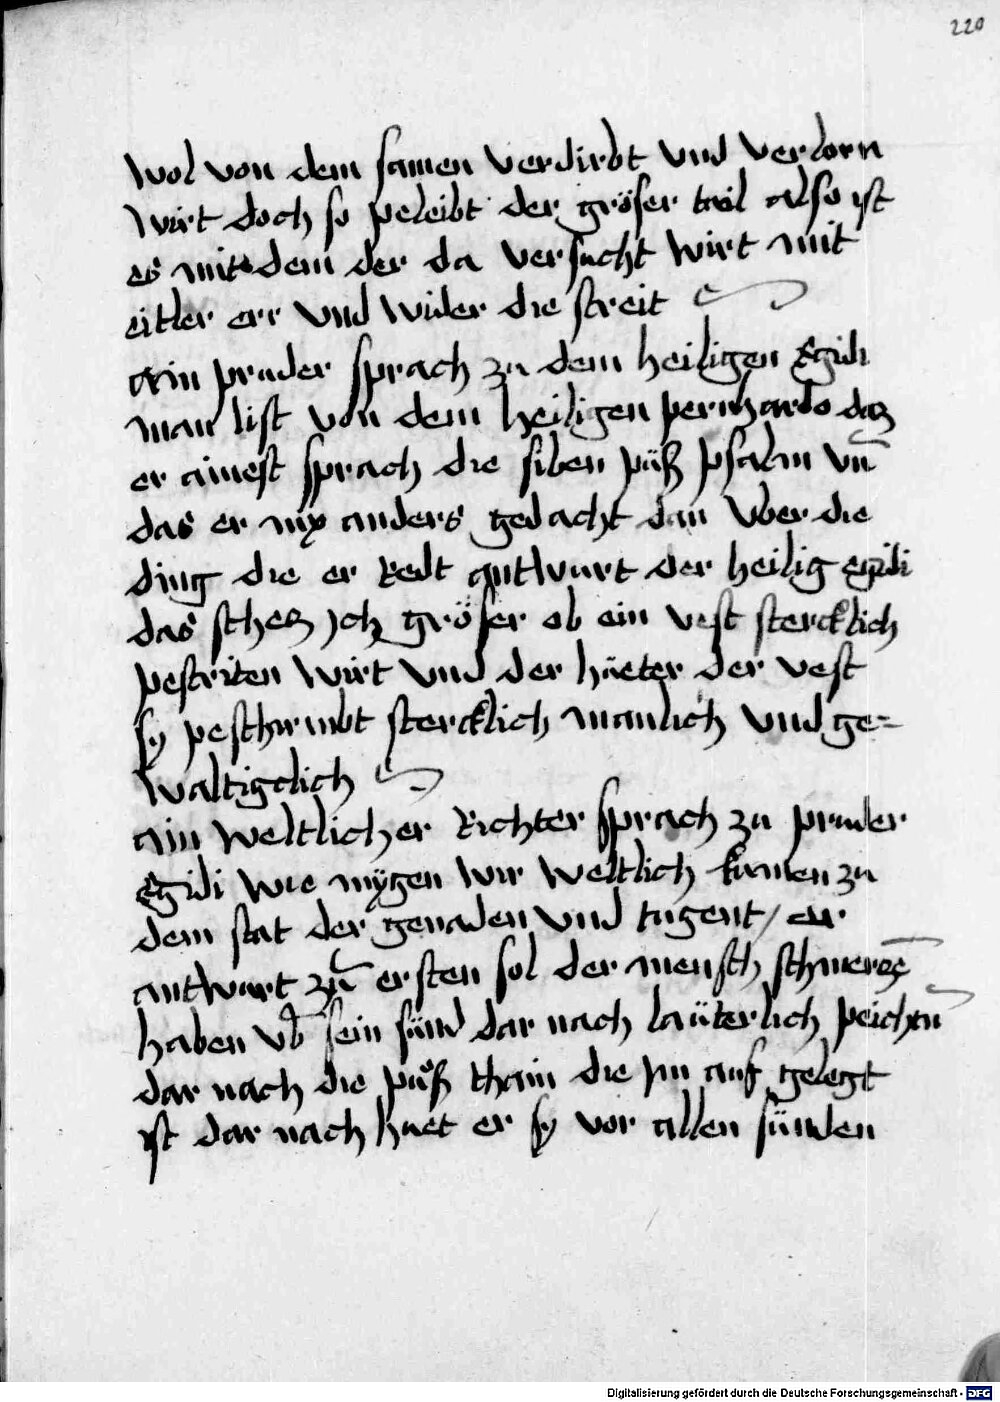 220
wol von dem samen verdirbt vnd verlorn
wirt doch so peleibt der gröser tail also ist
es mit dem der da versucht wirt mit
eitler err vnd wider die streit
ain pruder sprach zu dem heiligen Egidi
man list von dem heiligen pernhardo daz
er ainest sprach die siben püß psalm vn̄
das er nyx anders gedacht dan vber die
ding die er redt antwurt der heilig egidi
das schez jch gröser ob ein vest stercklich
pestriten wirt vnd der hüeter der vest
sy peschirmbt stercklich manlich vnd ge=
waltigclich
ain weltlicher richter sprach zu pruder
Egidi wie mygen wir weltlich kumen zu
dem stat der genaden vnd tugent / er
antwurt zū ersten sol der mensch schmerczē
haben vb̄ sein sünd dar nach laüterlich peichtn̄
dar nach die puͦß thain die jm auf gelegt
ist dar nach huet er sy vor allen sünden
Digitalisierung gefördert durch die Deutsche Forschungsgemeinschaft - DFG